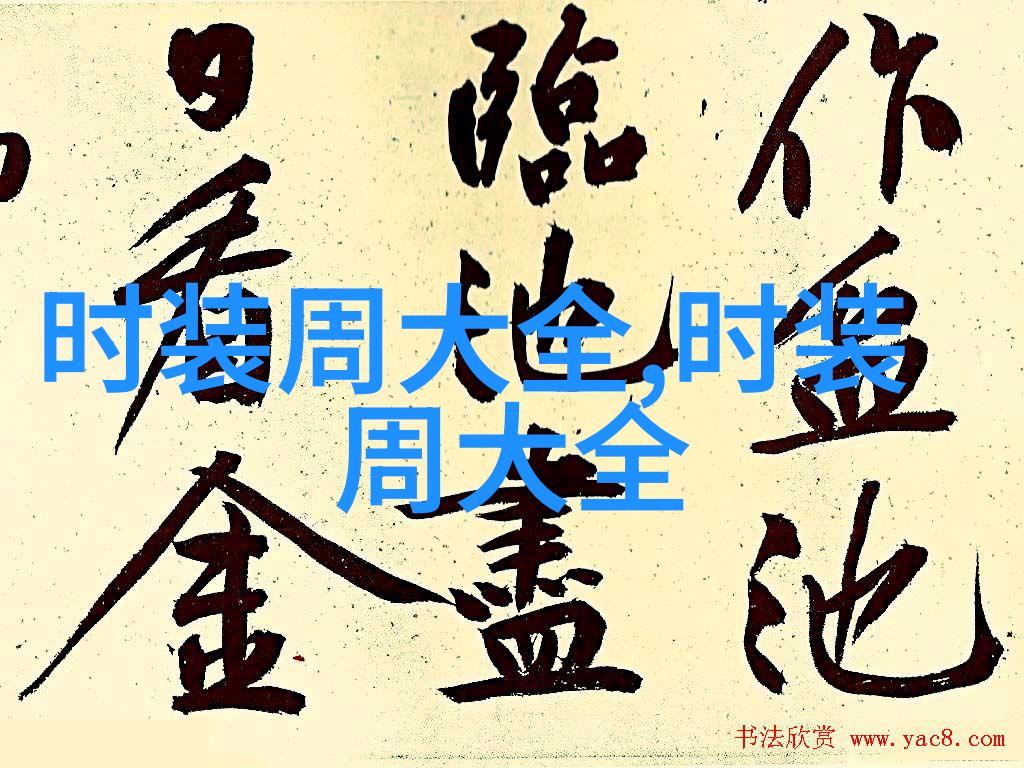 时装周大全,时装
周大全
作盆池
臨池盡
日看金
书法欣赏 www.yac8.com